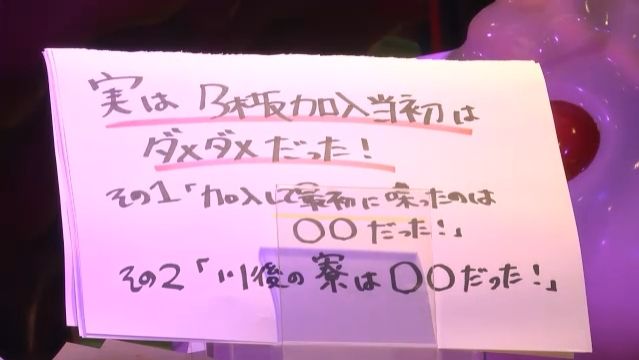 実は乃木坂加入当初は
ダメダメだった!
その1「加入して最初に味ったのは
〇〇だった!」
その2「川後の寮は〇〇だった!」